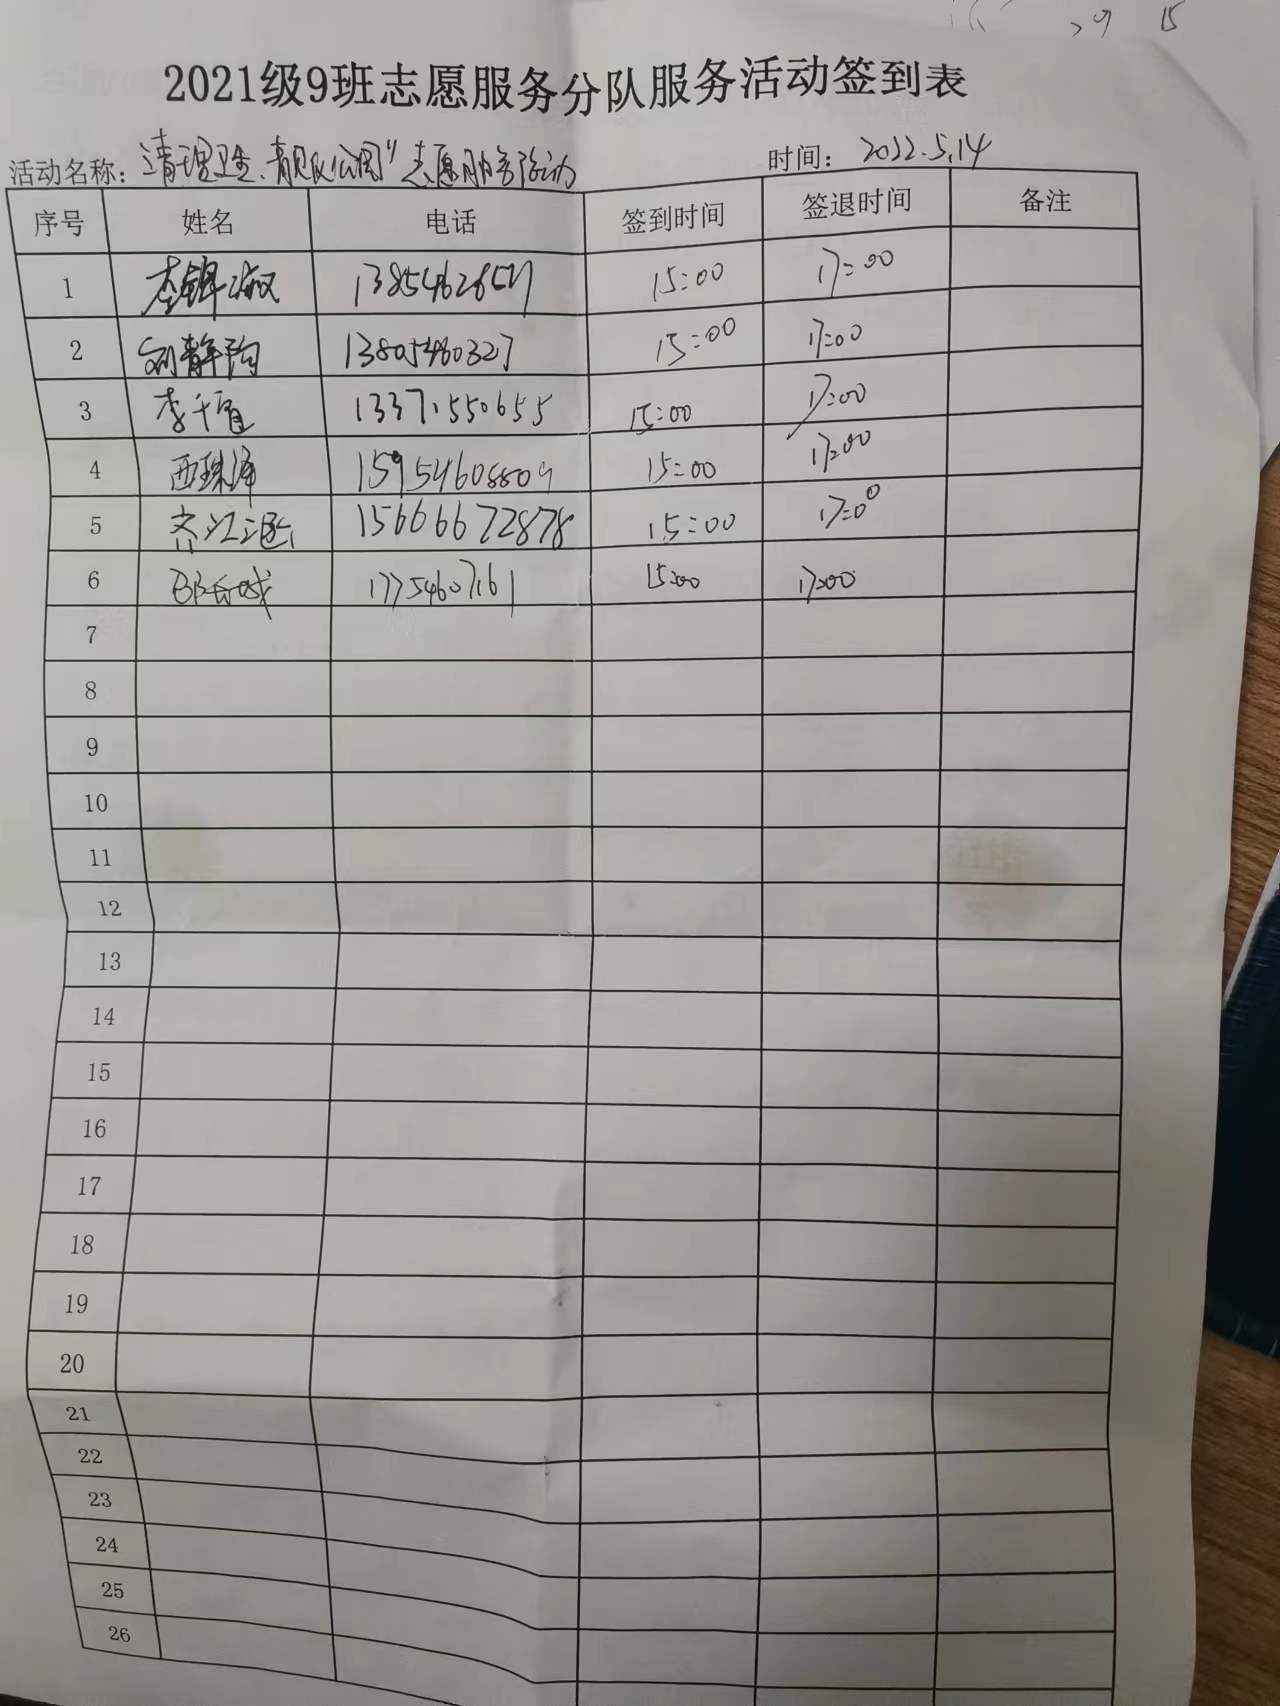 2021级9班志愿服务分队服务活动签到表
活动名称：清理卫生、靓公园"志愿服务活动 时间：2022.5.14
序号 姓名 电话 签到时间 签退时间 备注
1 李 淑 15:00 17:00
2 刘静 13805460327 15:00 17:00
3 李千 13371550655 15:00 17:00
4 西珠泽 15954608809 15:00 17:00
5 齐江 15666672878 15:00 17:00
6 17754607161 15:00 17:00
7
8
9
10
11
12
13
14
15
16
17
18
19
20
21
22
23
24
25
26